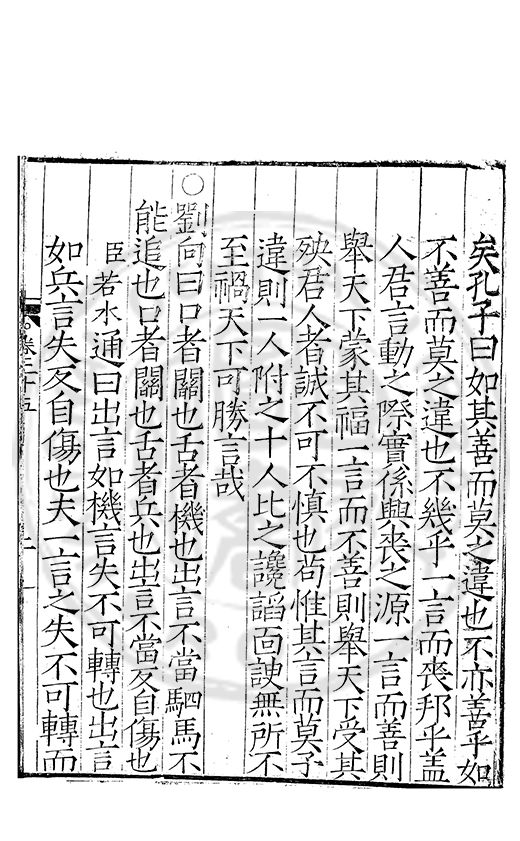 矣孔子曰如其善而莫之違也不亦善乎如
不善而莫之違也不幾乎一言而喪邦乎盖
人君言動之際實係興喪之源一言而善則
舉天下蒙其福一言而不善則舉天下受其
殃君人者誠不可不慎也苟惟其言而莫予
違則一人附之十人比之讒謟面諛無所不
至禍天下可勝言哉
○劉向曰口者關也舌者機也出言不當駟馬不
能追也口者關也舌者兵也出言不當反自傷也
臣若水通曰出言如機言失不可轉也出言
如兵言失反自傷也夫一言之失不可轉而
卷二十五